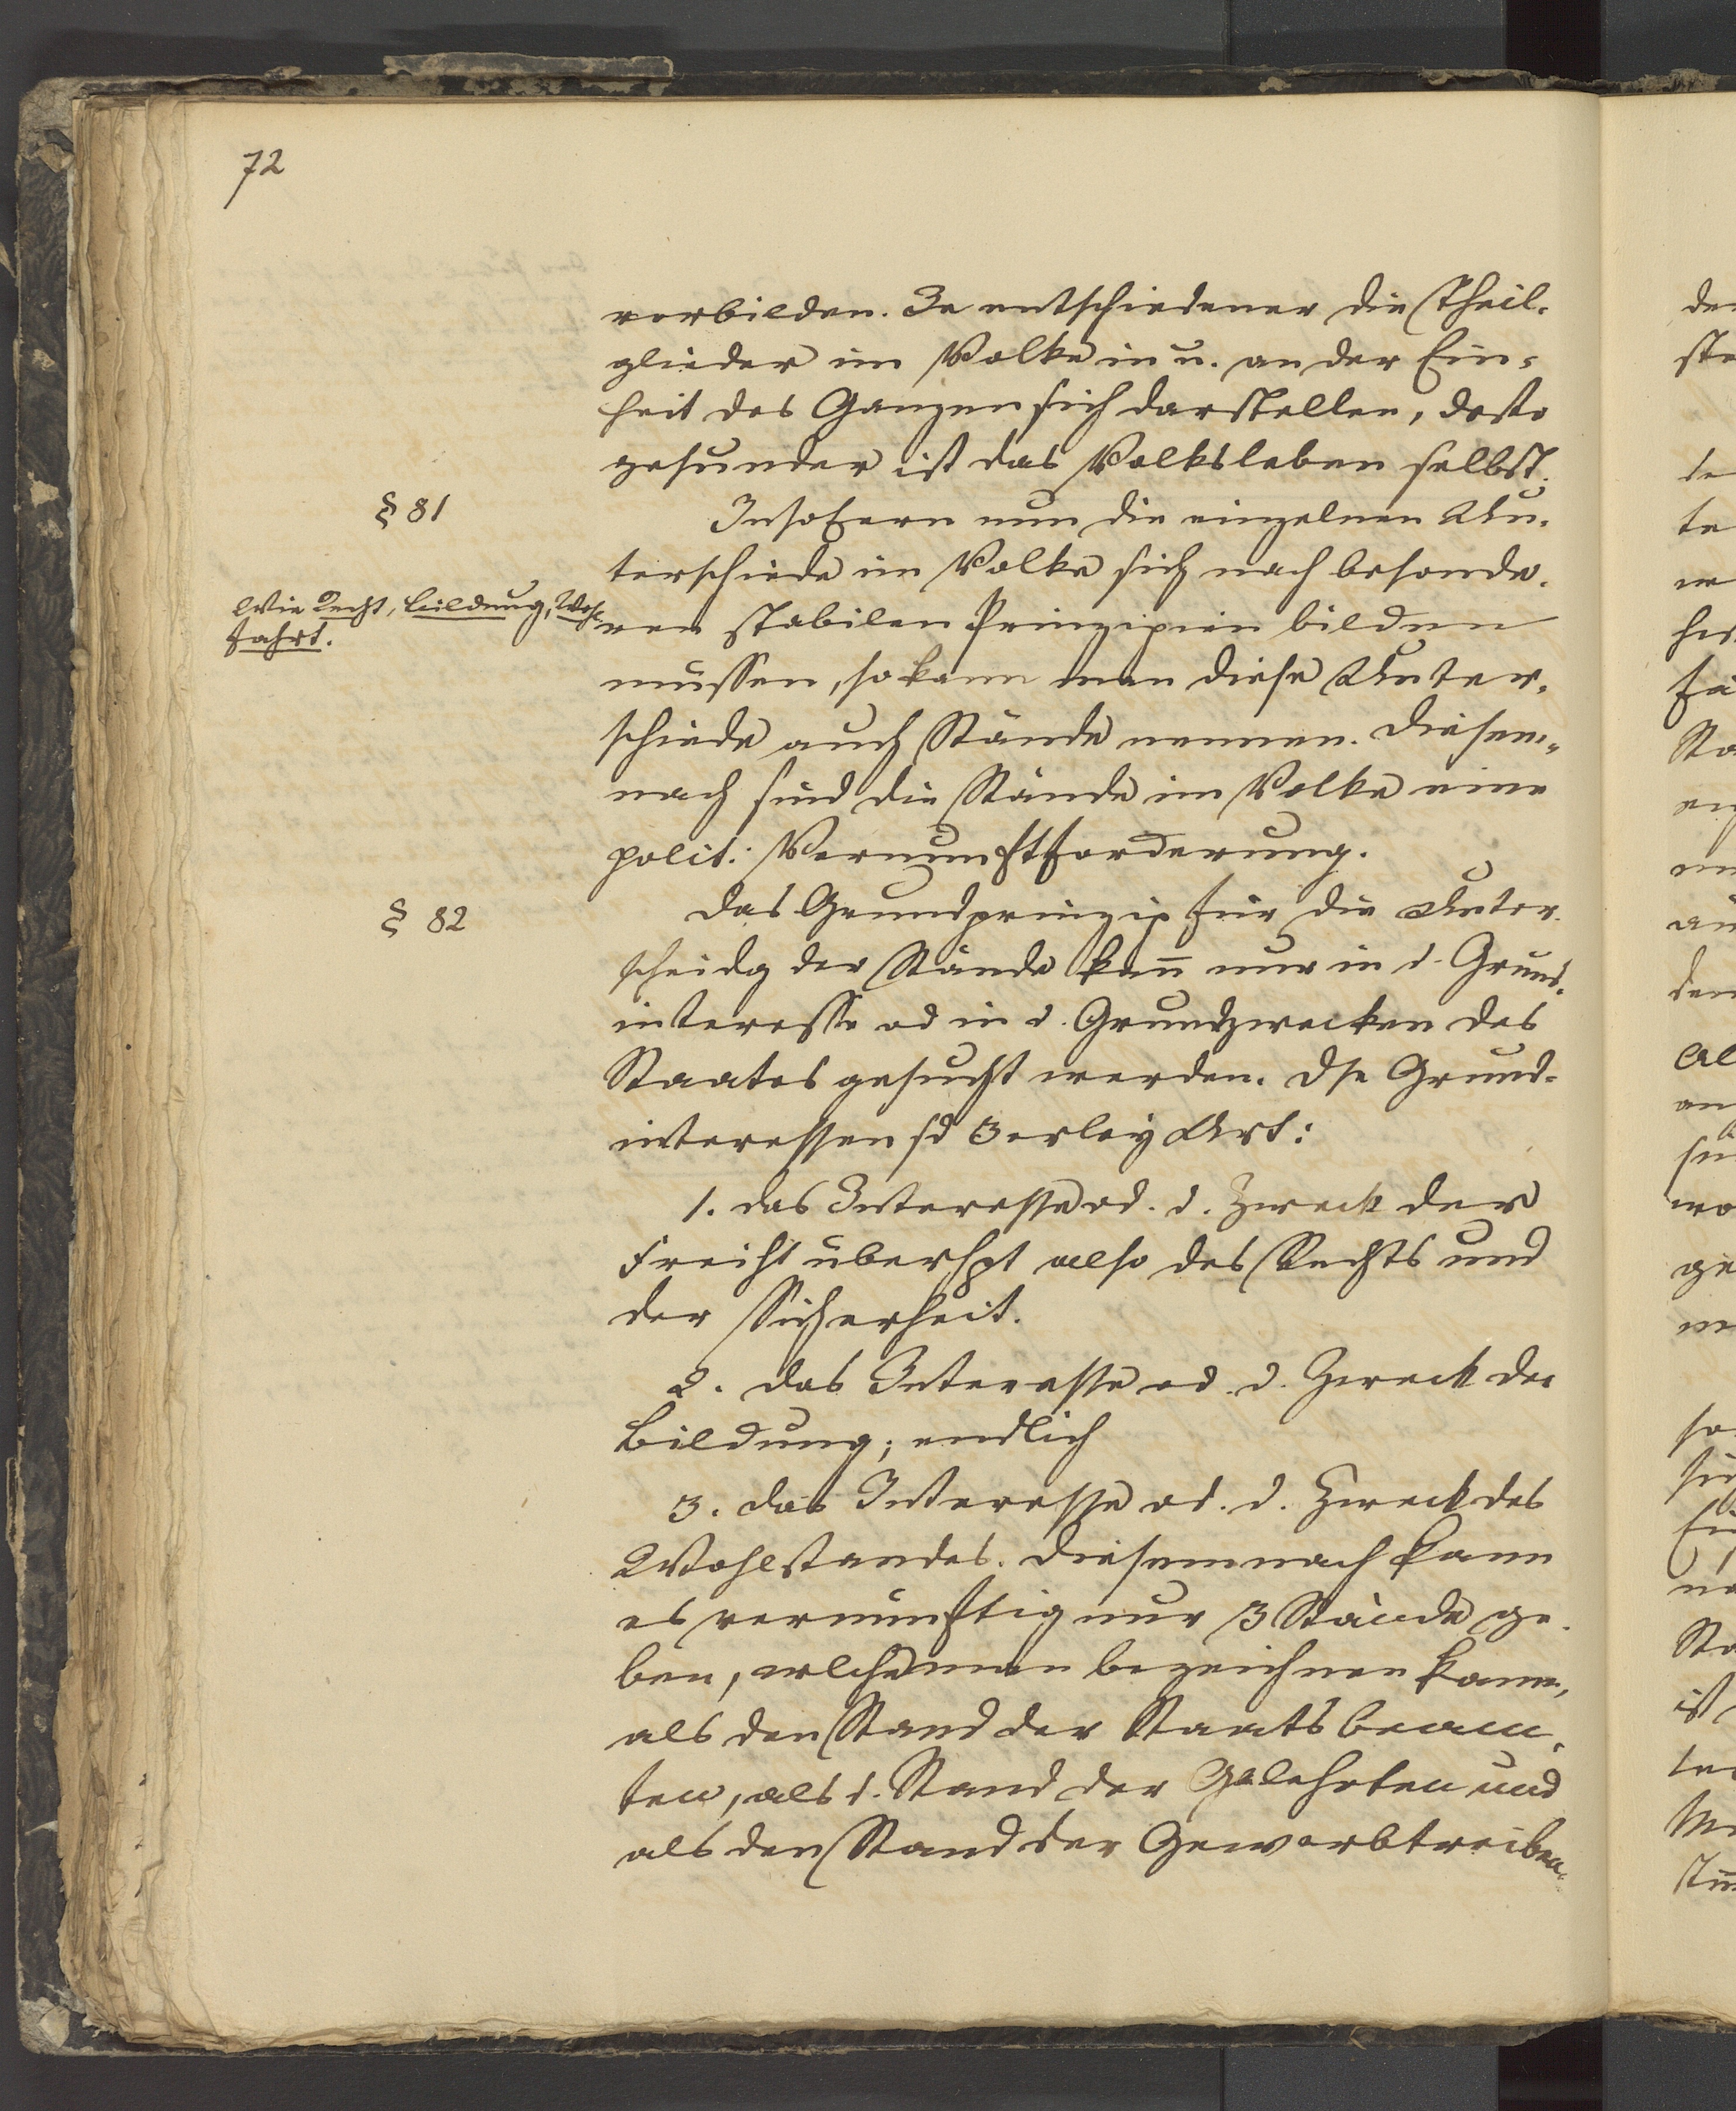 72
vorbilden. Je entschiedener die Theil-
glieder im Volke in u. an der Ein-
heit des Ganzen sich darstellen, desto
gesunder ist das Volksleben selbst.
§ 81
Insofern nun die einzelnen Un-
terschiede im Volke sich nach besonde-
Wie Recht, Bildung, Wohl
fahrt.
ren stabilen Prinzipien bilden
müssen, so kann man diese Unter-
schiede auch Stände nennen. Diesem-
nach sind die Stände im Volke eine
polit: Vernunftforderung.
§ 82
Das Grundprinzip für die Unter-
scheidg der Stände kan̄ nur in d. Grund-
interesse od in d. Grundzwecken des
Staates gesucht werden. Dse Grund-
interessen sd 3erley Art:
1. das Interesse od. d. Zweck der
Freiht überhpt also des Rechts und
der Sicherheit.
2. das Interesse od. d. Zweck der
Bildung; endlich
3. das Interesse od. d. Zweck des
Wohlstandes. Diesemnach kann
es vernünftig nur 3 Stände ge-
ben, welche man bezeichnen kann,
als den Stand der Staatsbeam-
ten, als d. Stand der Gelehrten und
als den Stand der Gewerbtreiben-